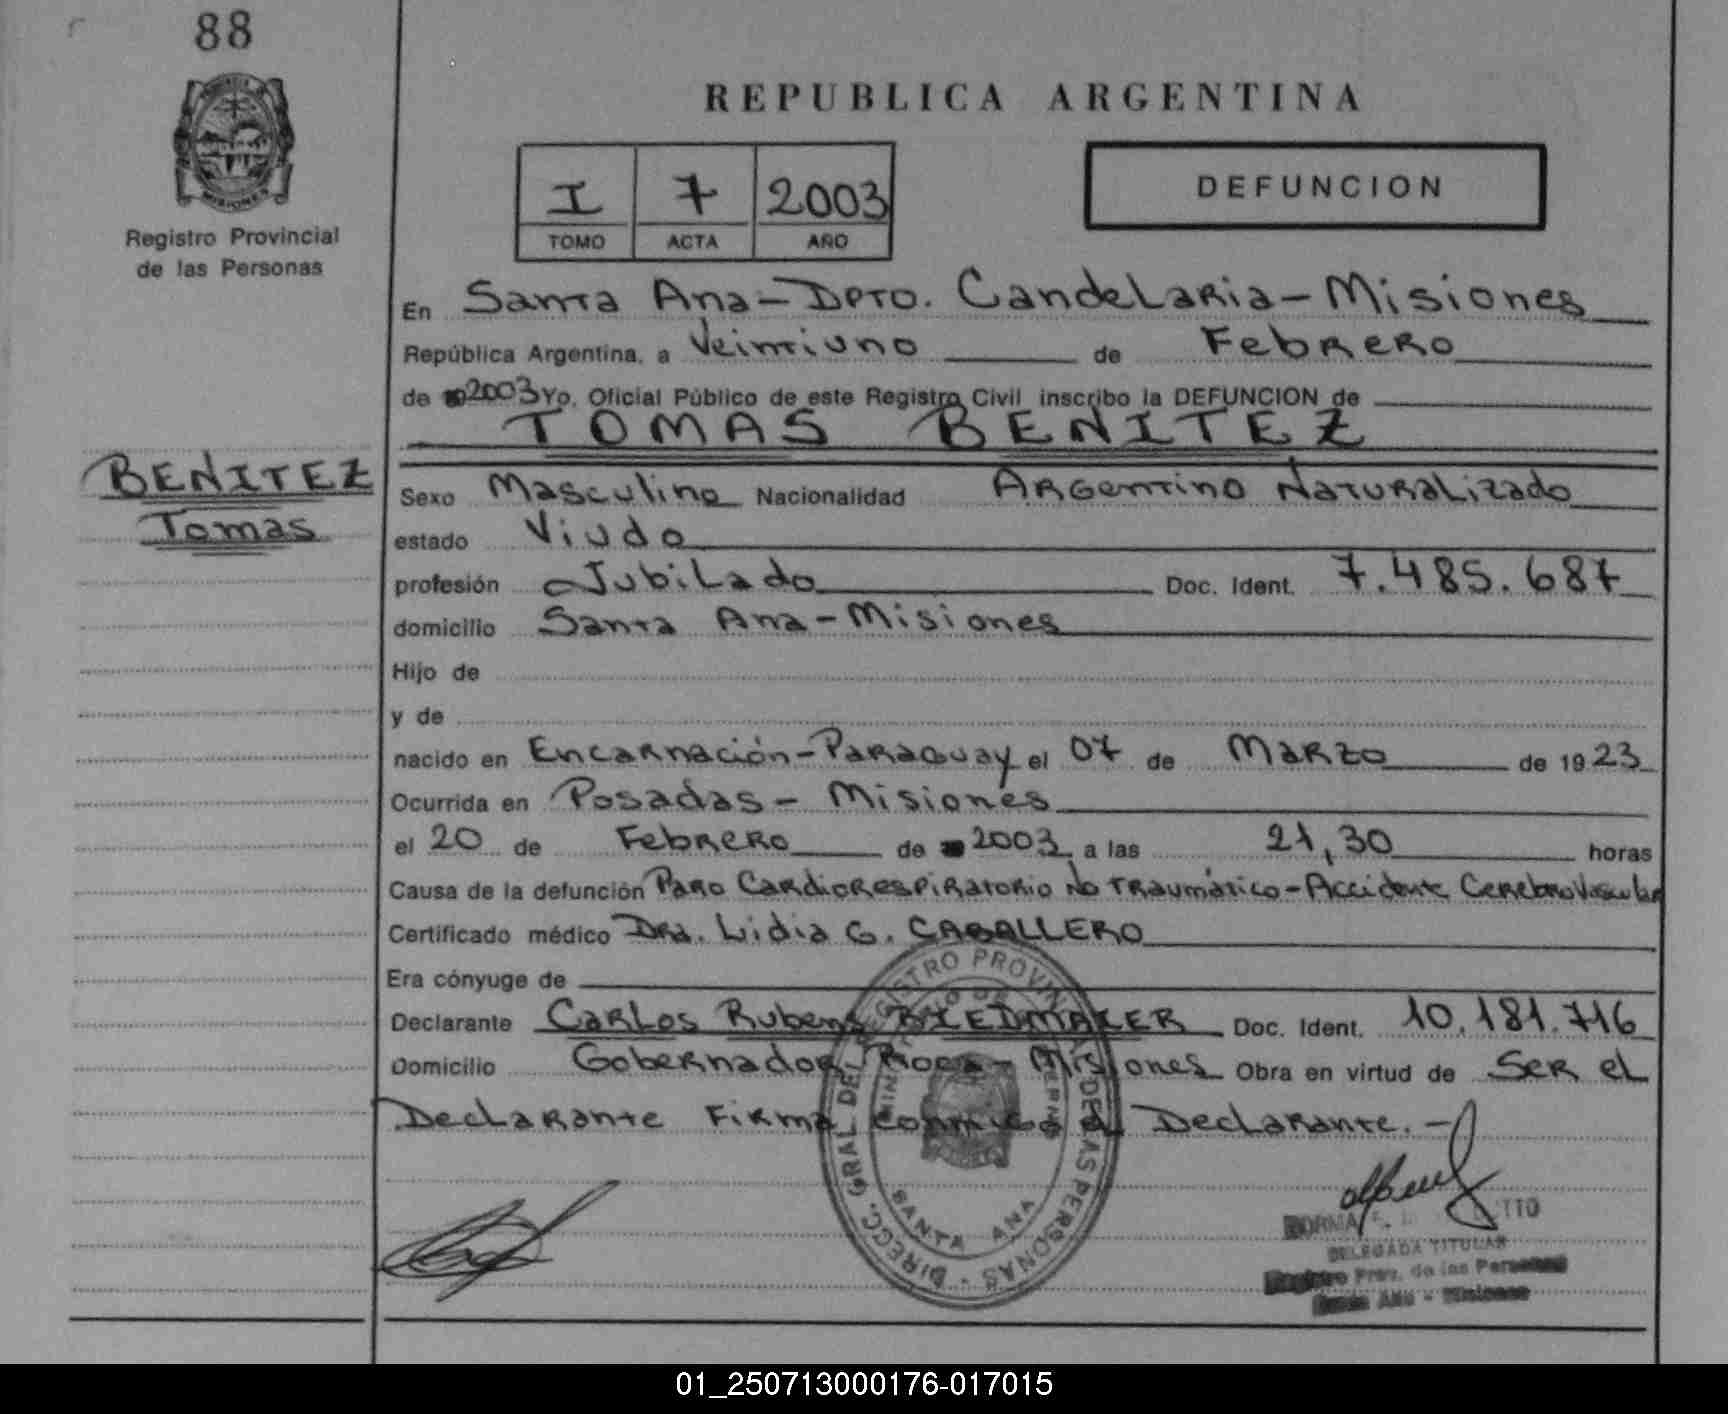 88
MISIONES
Registro Provincial
de las Personas
REPUBLICA ARGENTINA
I 7 2003
TOMO ACTA AÑO
DEFUNCION
En Santa Ana - Dpto. Candelaria - Misiones
República Argentina, a Veintiuno de Febrero
de 2003 Yo, Oficial Público de este Registro Civil inscribo la DEFUNCION de
TOMAS BENITEZ
BENITEZ
Tomas
Sexo Masculino Nacionalidad Argentino Naturalizado
estado Viudo
profesión Jubilado Doc. Ident. 7.485.687
domicilio Santa Ana - Misiones
Hijo de
y de
nacido en Encarnación - Paraguay el 07 de Marzo de 1923
Ocurrida en Posadas - Misiones
el 20 de Febrero de 2003 a las 21,30 horas
Causa de la defunción Paro Cardiorespiratorio No Traumático - Accidente Cerebro Vascular
Certificado médico Dra. Lidia G. CABALLERO
Era cónyuge de
Declarante Carlos Rubens BIEDMAIER Doc. Ident. 10.181.716
Domicilio Gobernador Roca - Misiones Obra en virtud de Ser el
Declarante Firma conmigo el Declarante. -
DIRECC. GRAL DEL REGISTRO PROVINCIAL DE LAS PERSONAS
SANTA ANA
NORMA
DELEGADA TITULAR
Registro Prov. de las Personas
Santa Ana - Misiones
01_250713000176-017015